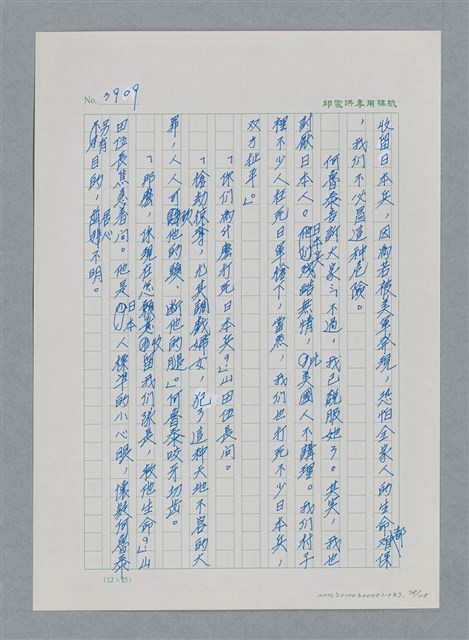 No. 3909
邱家洪專用稿紙
收留日本兵，因為若被美軍發現，恐怕全家人的生命都難保
，我們不必冒這種危險。
何魯泰告訴大家：不過，我已說服她了。其實，我也
討厭日本人。他們日本兵殘酷無情，此美國人不講理。我們村子
裡不少人枉死日軍槍下，當然，我們也打死不少日本兵，
双方扯平」。
「你們為什麼打死日本兵？」山田伍長問。
「搶劫掠奪，尤其調戲婦女，犯了這種天地不容的大
罪，人人可砍他的頭、斷他的腿」。何魯泰咬牙切齒。
「那麼，你現在怎願意收留我們隊長，救他生命？」山
田伍長焦急着問。他是日本人標準的小心眼，懷疑何魯泰
另有目的，居心不明。
(12×25)